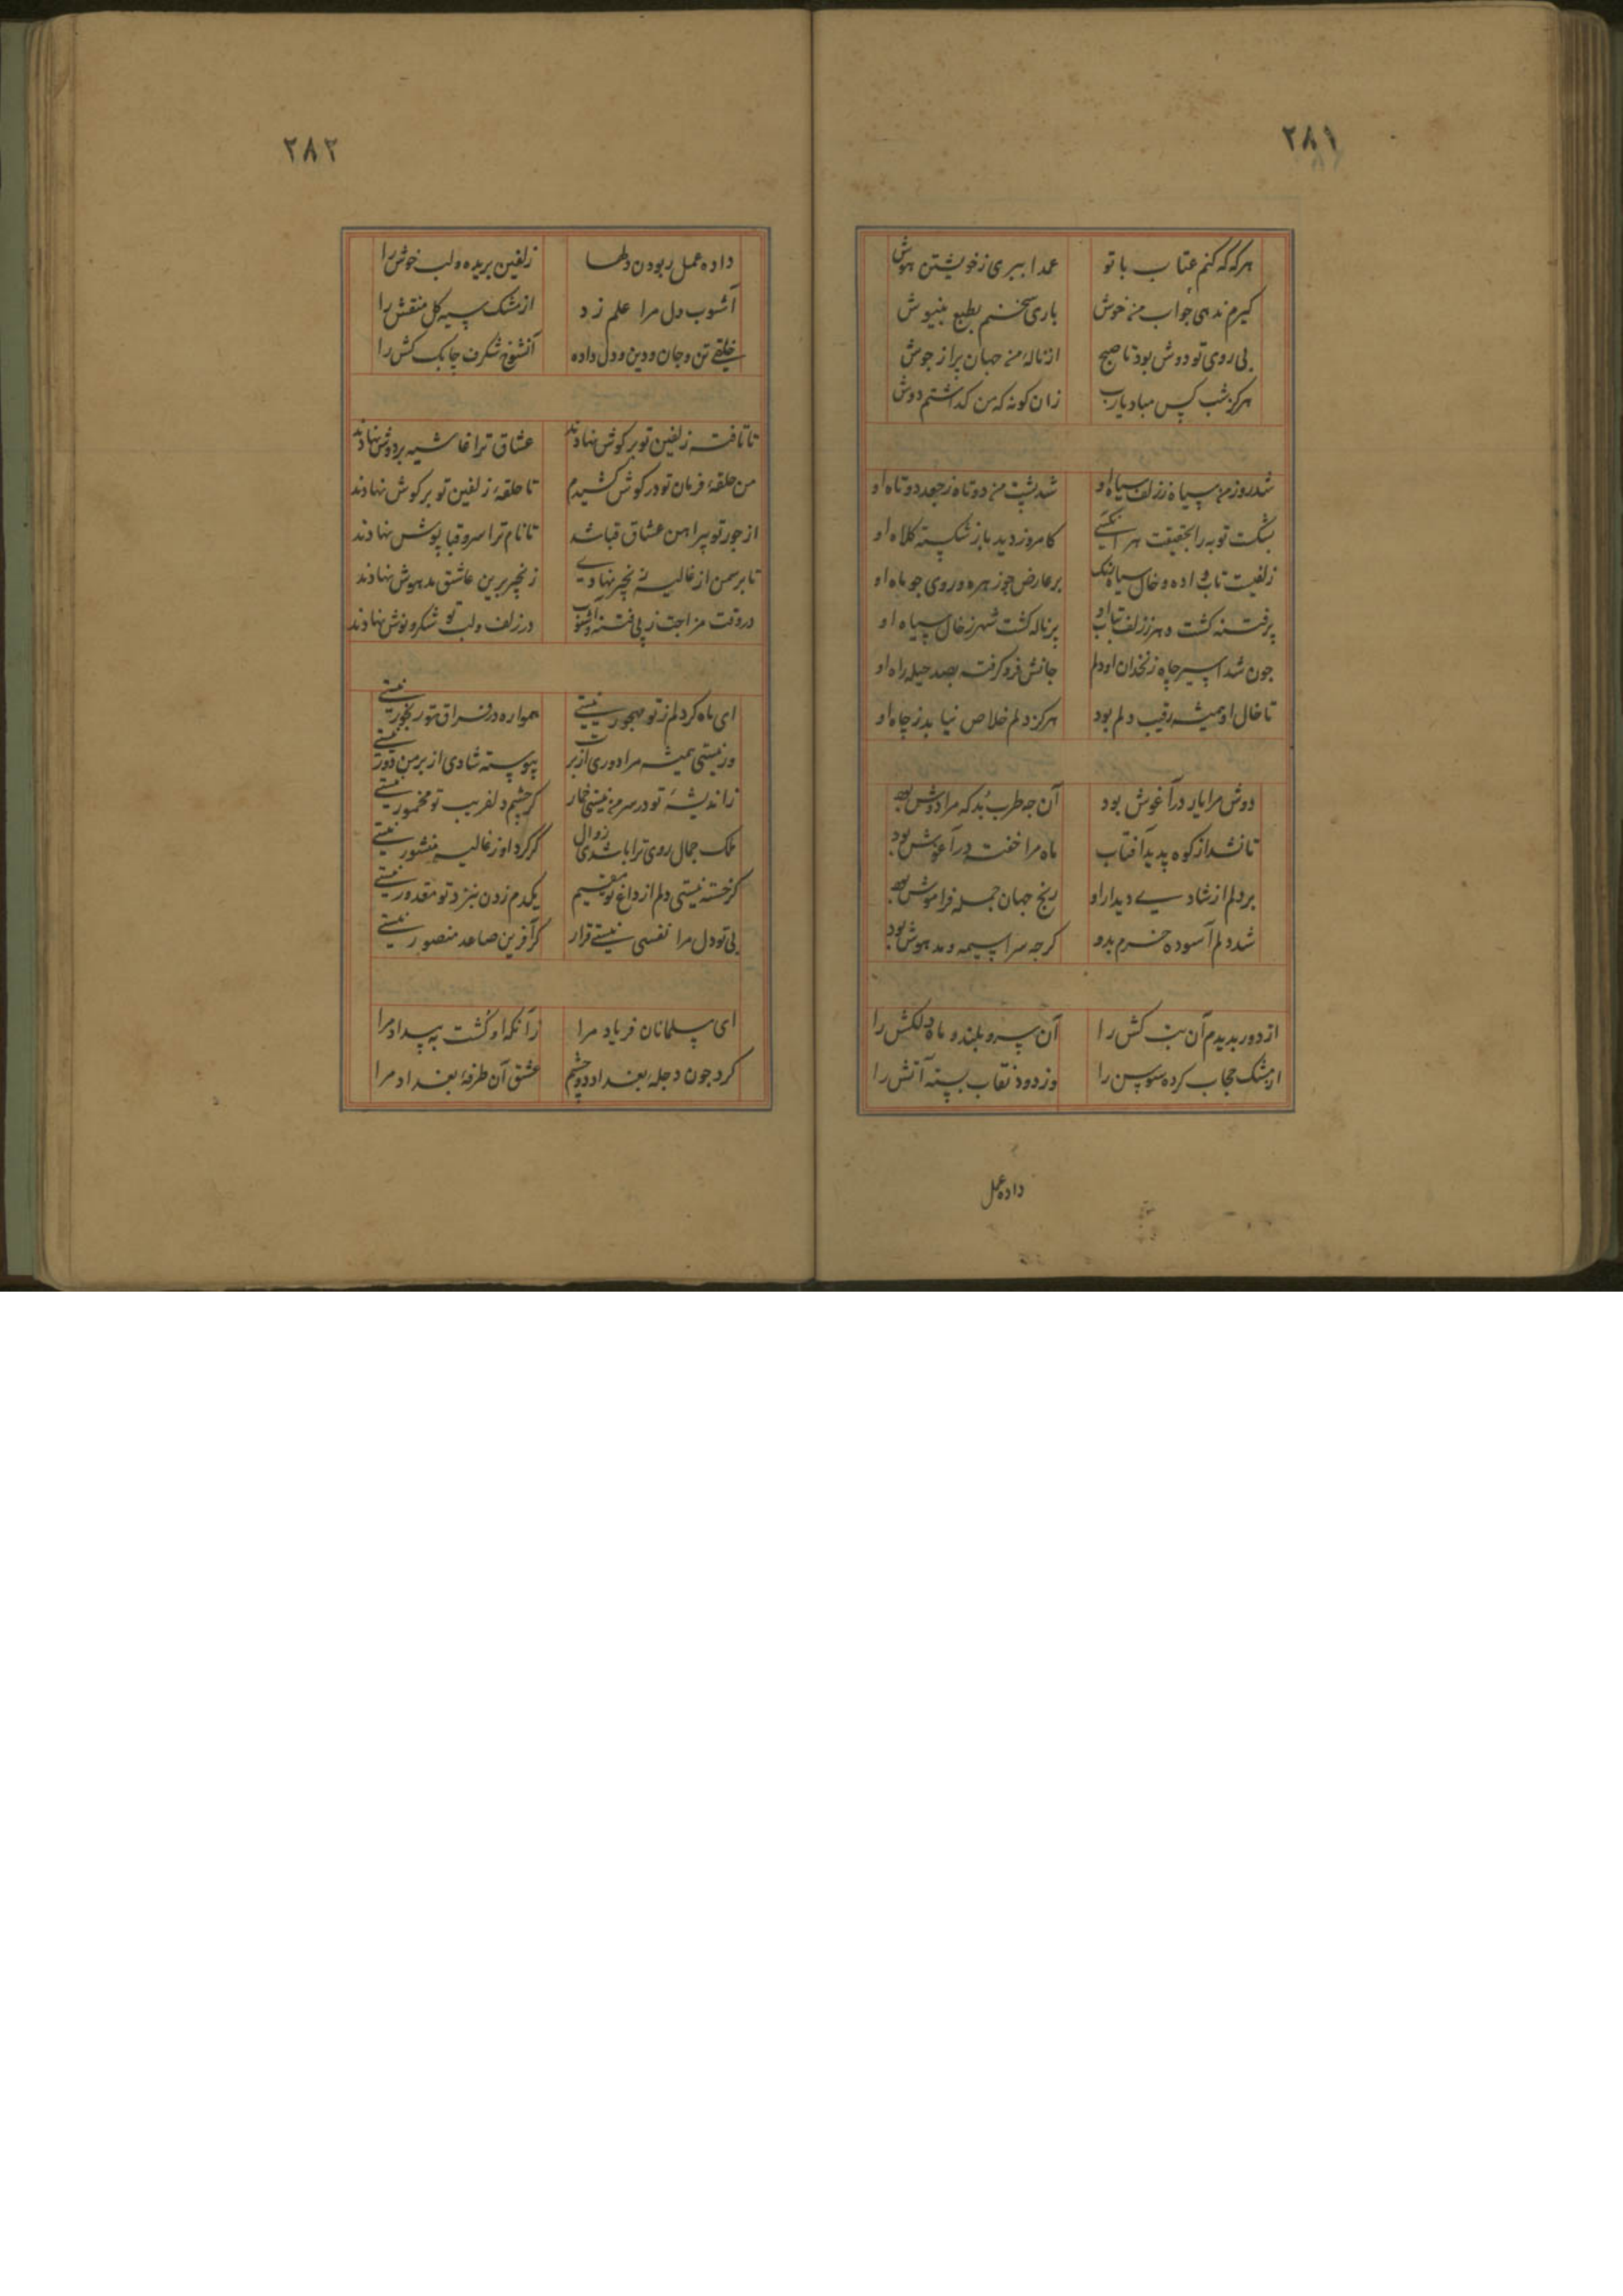 ۲۸۱
هرکه که کنم عتاب با تو عمدا ببری ز خویشتن هوش
کیرم ندهی جواب من خوش باری سخنم بطبع بنیوش
بی روی تو دوش بود تا صبح از نالهٔ من جهان پر از جوش
هرکز شب کس مباد یارب زان کونه که من کذاشتم دوش
شد روز من سیاه ز زلف سیاه او شد پشت من دوتاه ز جعد دوتاه او
بشکست توبه را بحقیقت هر انکسی کامروز دید باز شکسته کلاه او
زلفیست تاب داده و خال سیاه رنک بر عارض جو زهره و روی جو ماه او
پرفتنه کشت دهر ز زلف بتاب او پرناله کشت شهر ز خال سیاه او
جون شد اسیر جاه زنخدان او دلم جانش فرو کرفت بصد حیله راه او
تا خال او همیشه رقیب دلم بود هرکز دلم خلاص نیابد ز جاه او
دوش مرا یار در آغوش بود آن جه طرب بد که مرا دوش بود
تا نشد از کوه پدید آفتاب ماه مرا خفته در آغوش بود
بر دلم از شادیی دیدار او رنج جهان جمله فراموش بود
شد دلم آسوده و خرم بدو کرجه سراسیمه و مدهوش بود
از دور بدیدم آن بت کش را آن سرو بلند و ماه دلکش را
از مشک حجاب کرده سوسن را وز دود نقاب بسته آتش را
داده عمل
۲۸۲
داده عمل ربودن دلها زلفین بریده و لب خوش را
آشوب دل مرا علم زد از مشک سیه کل منقش را
خلقی تن و جان و دین و دل داده آن شوخ شکرف جابک کش را
تا تافته زلفین تو بر کوش نهادند عشاق ترا غاشیه بر دوش نهادند
من حلقهٔ فرمان تو در کوش کشیدم تا حلقهٔ زلفین تو بر کوش نهادند
از جور تو پیراهن عشاق قبا شد تا نام ترا سرو قباپوش نهادند
تا بر سمن از غالیه زنجیر نهادی زنجیر برین عاشق مدهوش نهادند
در وقت مزاجت ز پی فتنه و آشوب در زلف و لب تو شکر و نوش نهادند
ای ماه کر دلم ز تو مهجور نیستی همواره در فراق تو رنجور نیستی
ور نیستی همیشه مرا دوری از برت پیوسته شادی از بر من دور نیستی
ز اندیشهٔ تو در سر من نیستی خمار کر جشم دلفریب تو مخمور نیستی
ملک جمال روی ترا باشدی زوال کر کرد او ز غالیه منشور نیستی
کر خسته نیستی دلم از داغ تو مقیم یکدم زدن بنزد تو مقدور نیستی
بی تو دل مرا نفسی نیستی قرار کر آفرین صاعد منصور نیستی
ای مسلمانان فریاد مرا زآنکه او کشت به بیداد مرا
کرد جون دجلهٔ بغداد دو جشم عشق آن طرفهٔ بغداد مرا